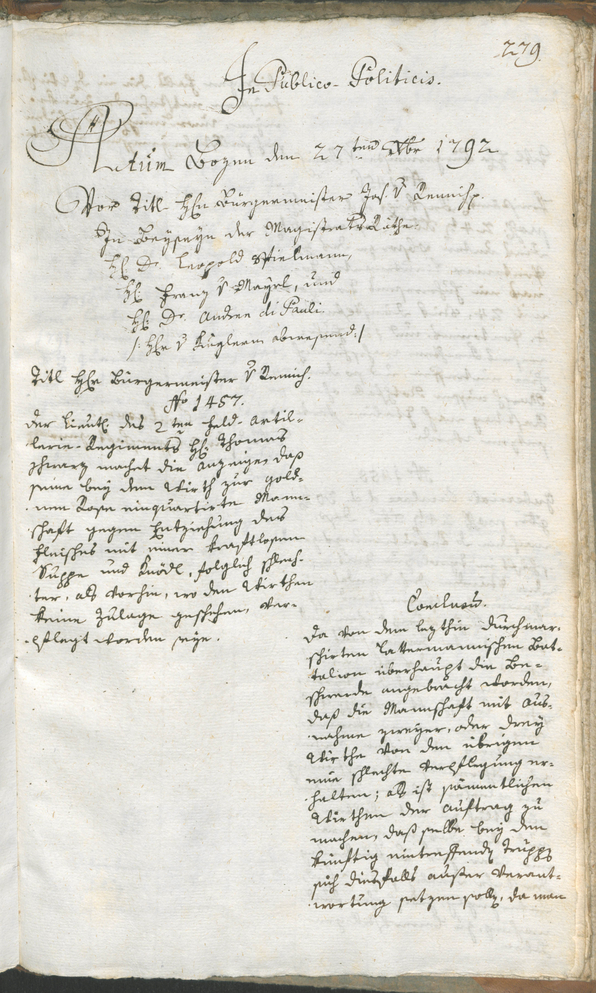 229.
In Publico-Politicis.
Actum Bozen den 27ten Xbr 1792
Vor Titl Hhn Bürgermeister Jos. v Remich,
In Beyseyn der Magistrats Räthe.
Hl Dr. Leopold Spielmann,
Hl Franz v Mayrl, und
Hl Dr. Andree di Pauli
/: Hhr v Kuglern abwesend :/
Titl Hhr Bürgermeister v Remich.
No 1457.
Der Lieut. des 2ten Feld-Artil-
lerie-Regiments Hl Thomas
Schwarz machet die Anzeige, daß
seine bey dem Wirth zur golde-
nen Rose einquartirte Mann-
schaft gegen Entziehung des
Fleisches mit einer kraftlosen
Suppe und Knödl, folglich schlech-
ter, als vorhin, wo den Wirthen
keine Zulage geschehen, ver-
pflegt worden seye.
Conclusum.
Da von dem lezthin durchmar-
schirten Lattermannischen Bat-
talion überhaupt die Be-
schwerde angebracht worden,
daß die Mannschaft mit Aus-
nahme zweyer, oder drey
Wirthe von den übrigen
eine schlechte Verpflegung er-
halten; als ist sämmentlichen
Wirthen der Auftrag zu
machen, daß selbe bey den
künftig eintreffenden Trupps
sich diesfalls ausser Verant-
wortung setzen solln, da man